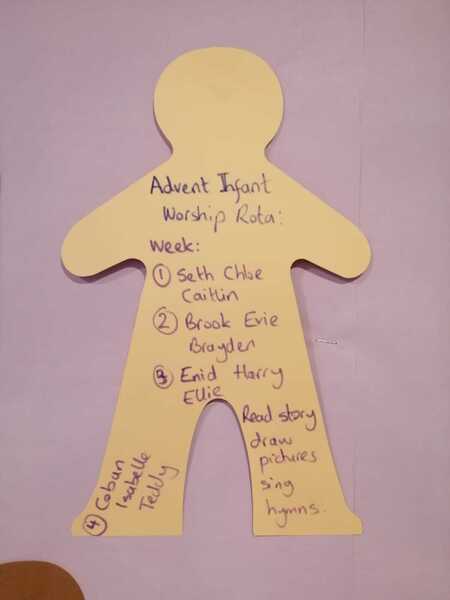 Advent Infant
Worship Rota:
Week:
① Seth Chloe
Caitlin
② Brook Evie
Brayden
③ Enid Harry
Ellie
④ Coban
Isabelle
Teddy
Read story
draw
pictures
sing
hymns.